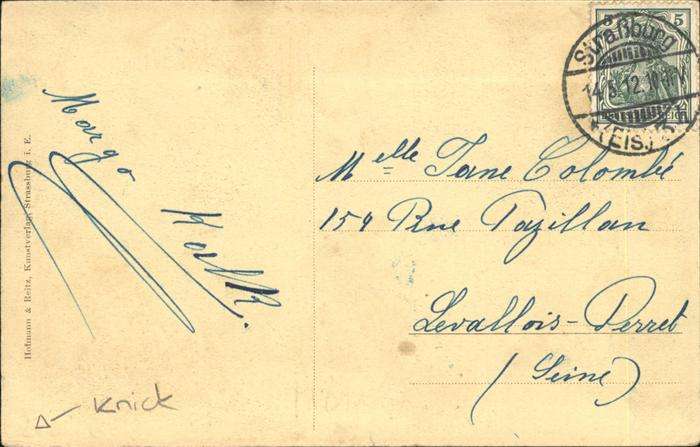 Margo
Hofmann & Reitz, Kunstverlag, Strassburg i. E.
Knick
5 5
Straßburg
14.8.12.
(ELS.)
Melle Jane Colombé
154 Rue Fazillau
Levallois-Perret
(Seine)